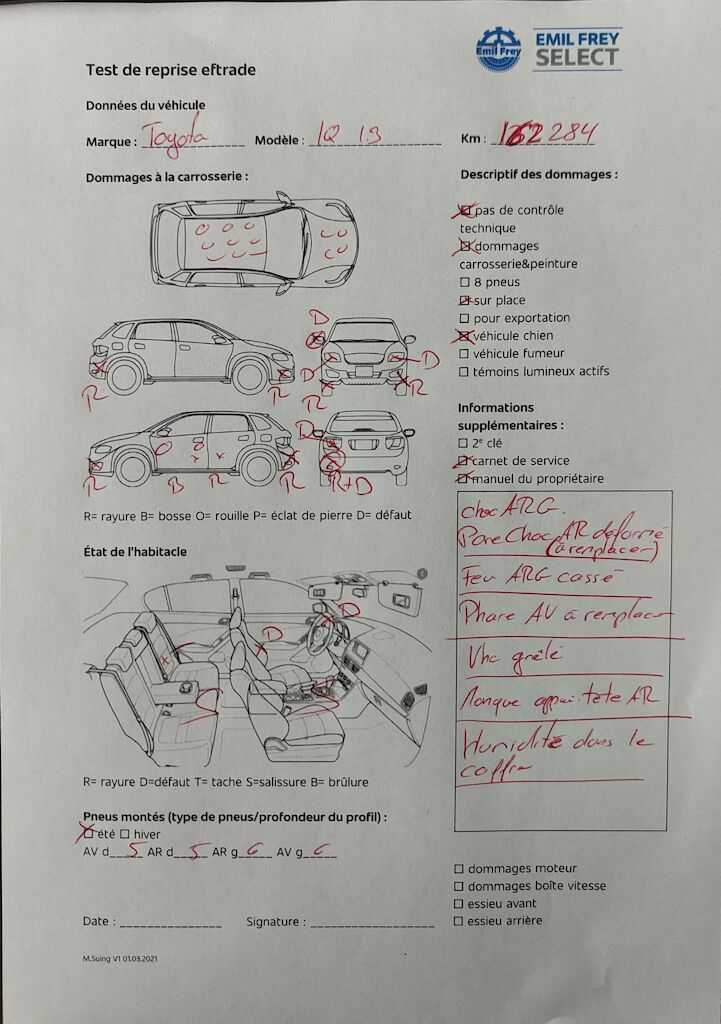 Emil Frey
EMIL FREY
SELECT
Test de reprise eftrade
Données du véhicule
Marque : Toyota Modèle : IQ 1.3 Km : 162 284
Dommages à la carrosserie :
D
D
D
R R R R
D
R B R R R+D
R= rayure B= bosse O= rouille P= éclat de pierre D= défaut
État de l'habitacle
D
D
R= rayure D=défaut T= tache S=salissure B= brûlure
Pneus montés (type de pneus/profondeur du profil) :
été hiver
AV d 5 AR d 5 AR g 6 AV g 6
Date : Signature :
M.Suing V1 01.03.2021
Descriptif des dommages :
pas de contrôle
technique
dommages
carrosserie&peinture
8 pneus
sur place
pour exportation
véhicule chien
véhicule fumeur
témoins lumineux actifs
Informations
supplémentaires :
2e clé
carnet de service
manuel du propriétaire
choc ARG.
Pare Choc AR deformé
(à remplacer)
Feu ARG cassé
Phare AV à remplacer
Vhc grêlé
Manque appui-tête AR
Humidité dans le
coffre
dommages moteur
dommages boîte vitesse
essieu avant
essieu arrière